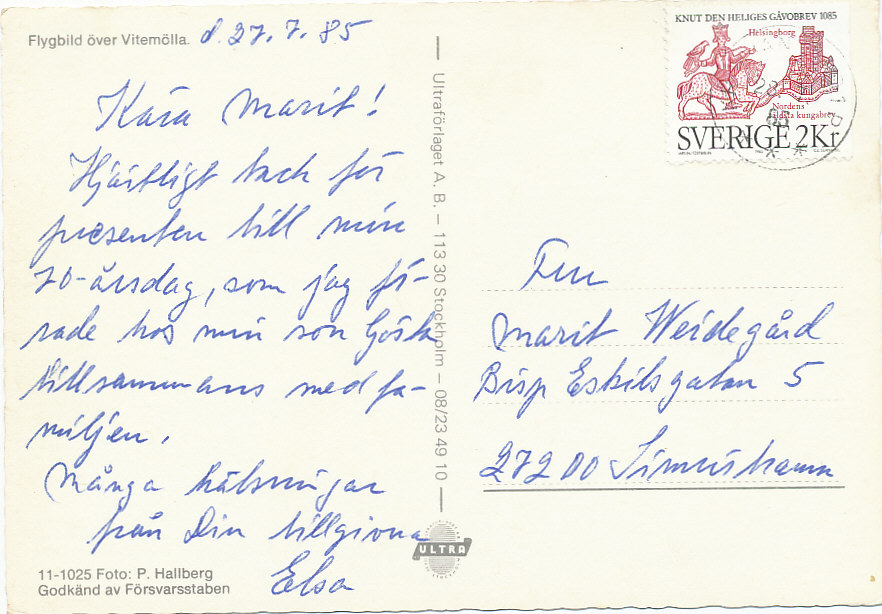 Flygbild över Vitemölla. d. 27.7.85
Kära Marit!
Hjärtligt tack för
presenten till min
70-årsdag, som jag fi-
rade hos min son Gösta
tillsammans med fa-
miljen.
Många hälsningar
från Din tillgivna
Elsa
11-1025 Foto: P. Hallberg
Godkänd av Försvarsstaben
Ultraförlaget A. B. – 113 30 Stockholm – 08/23 49 10
ULTRA
KNUT DEN HELIGES GÅVOBREV 1085
Helsingborg
Nordens
äldsta kungabrev
SVERIGE 2Kr
85
Fru
Marit Weidegård
Bisp Eskilsgatan 5
272 00 Simrishamn